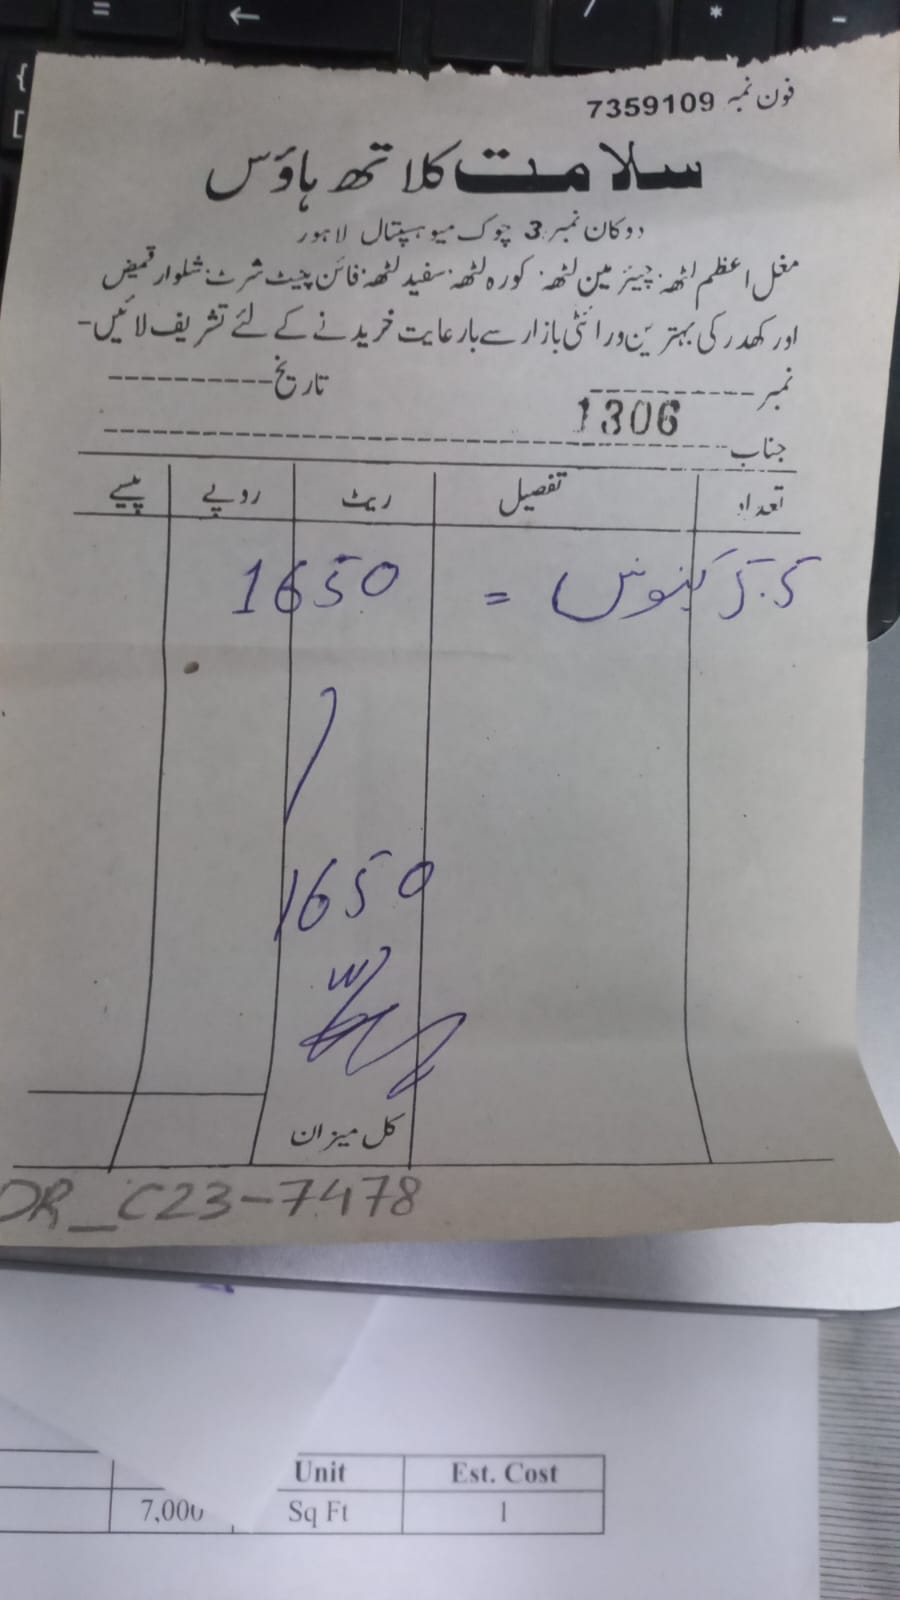 فون نمبر 7359109
سلامت کلاتھ ہاؤس
دوکان نمبر 3 چوک میو ہسپتال لاہور
مغل اعظم لٹھہ: چیئرمین لٹھہ: کورہ لٹھہ: سفید لٹھہ: فائن پینٹ شرٹ: شلوار قمیض
اور کھدر کی بہترین ورائٹی بازار سے بارعایت خریدنے کے لئے تشریف لائیں-
نمبر 1306 تاریخ
جناب
تعداد تفصیل ریٹ روپے پیسے
5.5 کینوس = 1650
1650
کل میزان
DR_C23-7478
Unit Est. Cost
7,000 Sq Ft 1